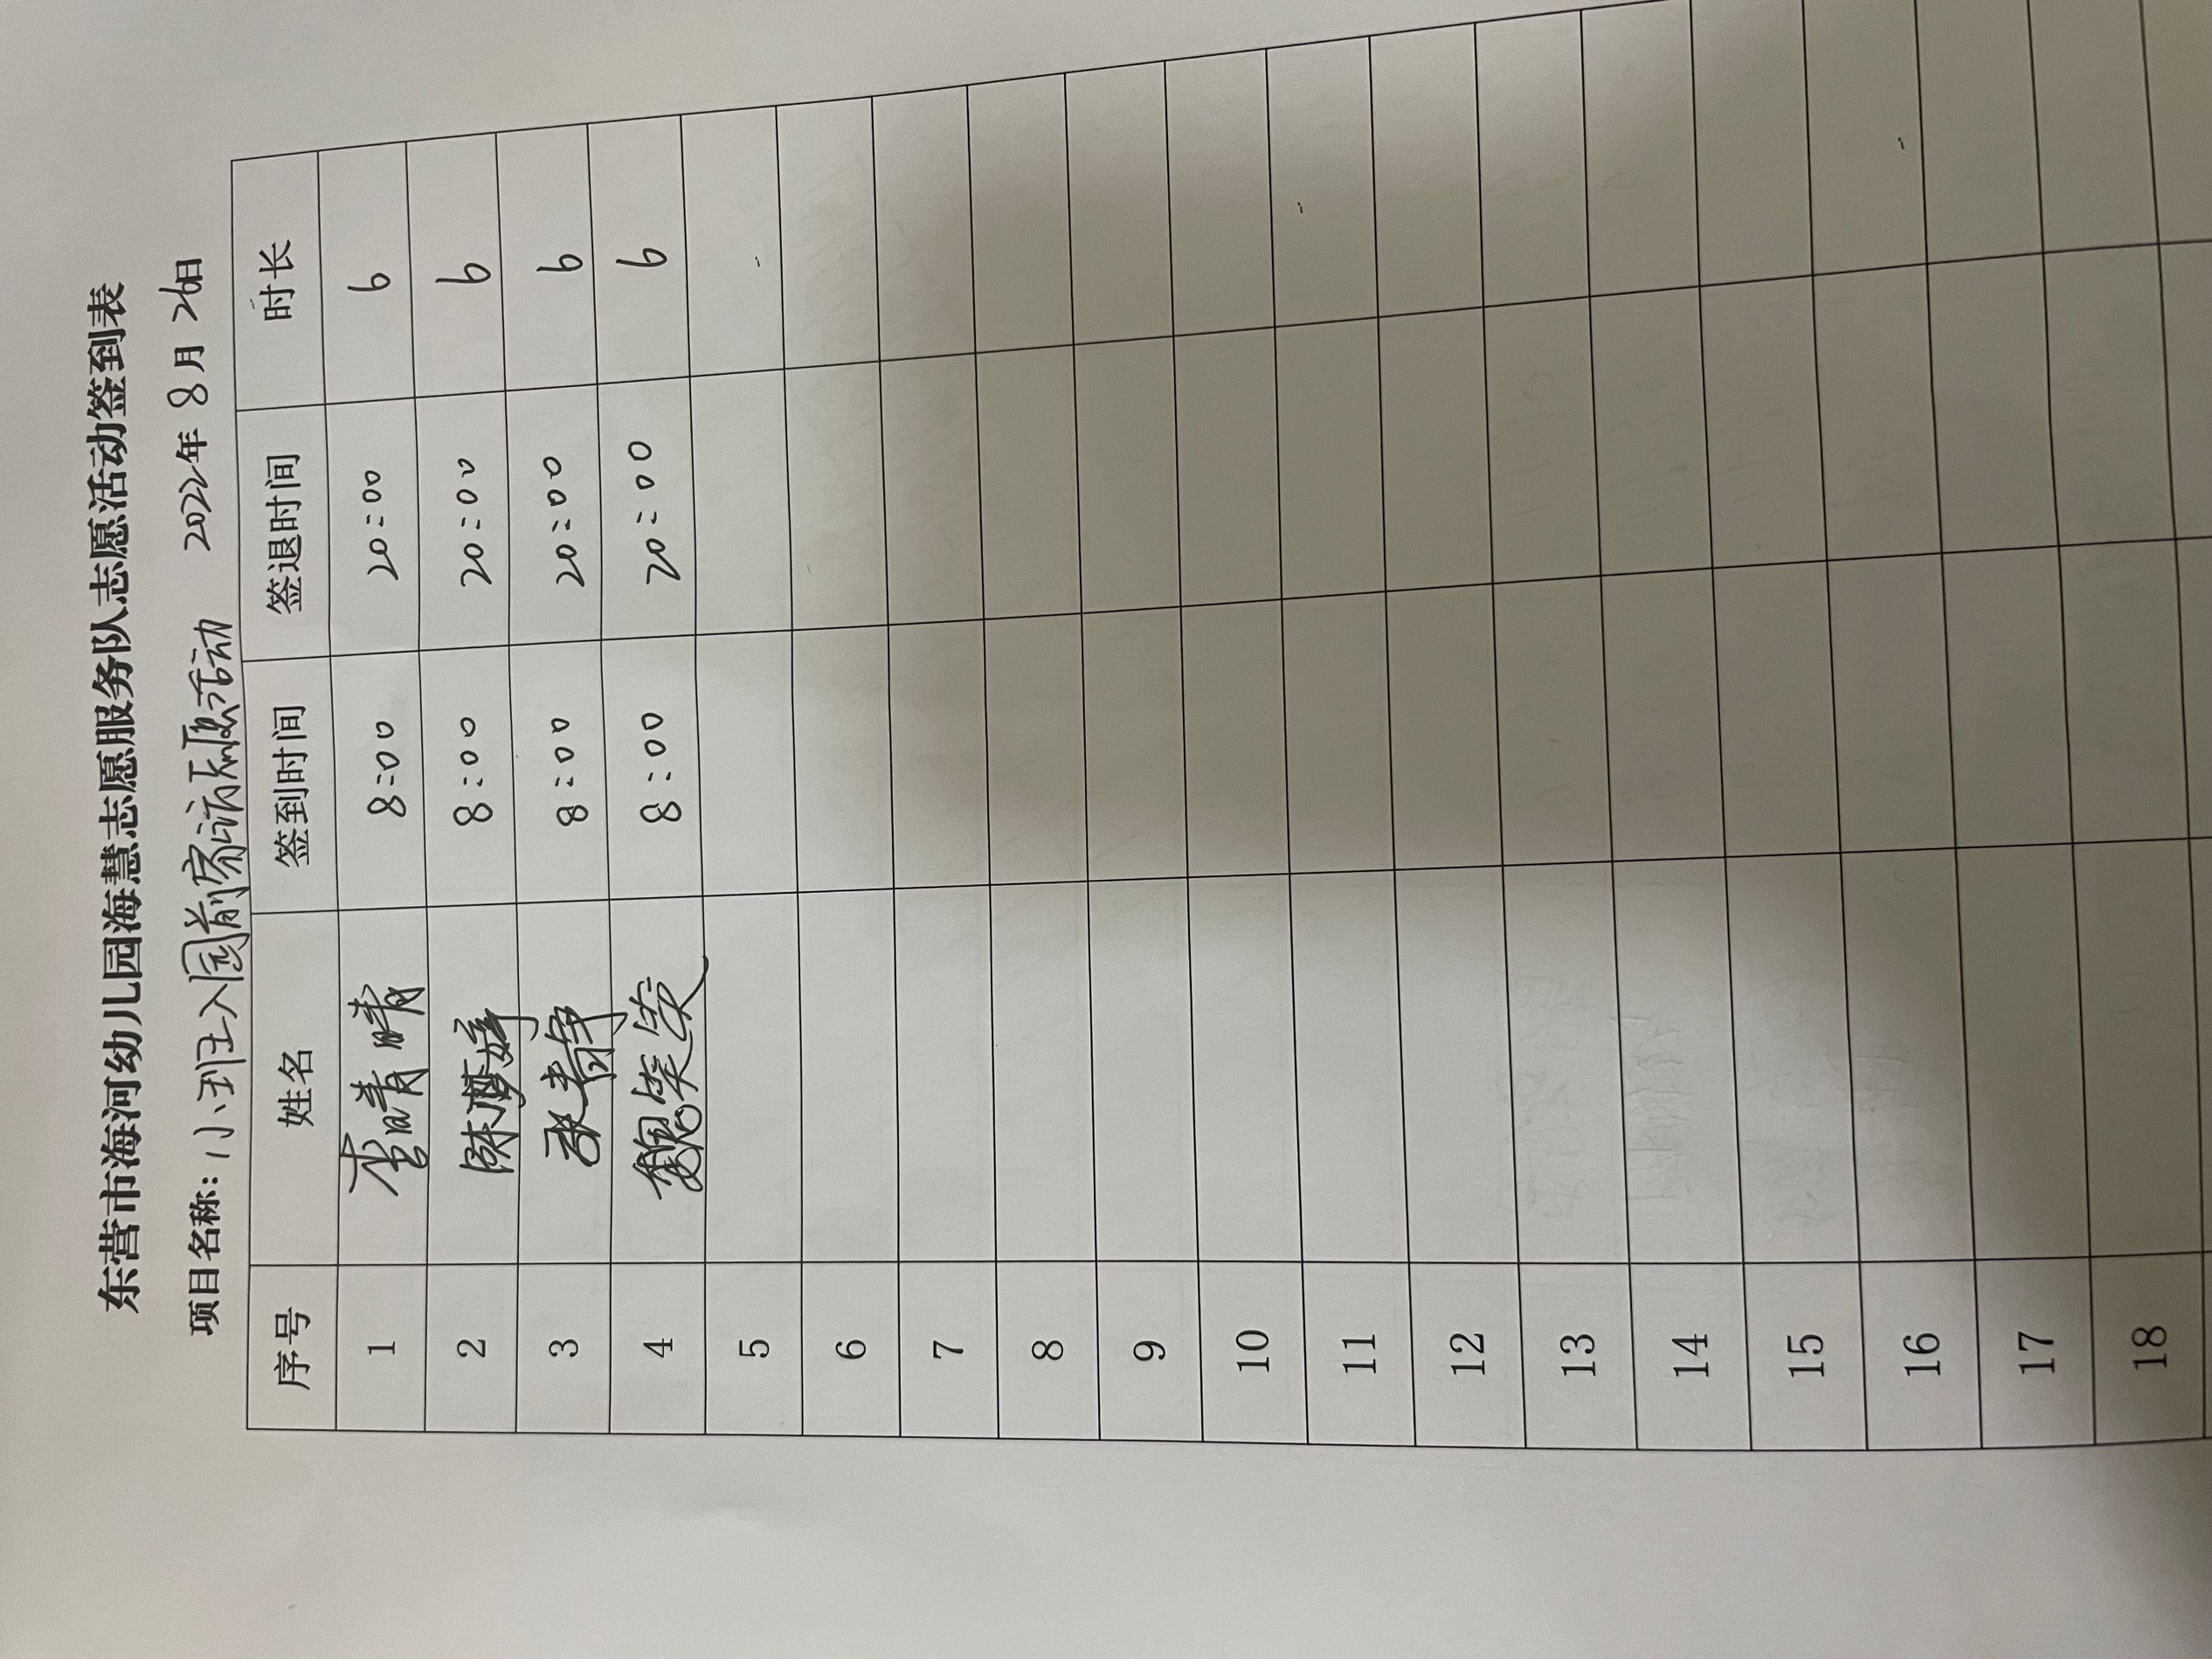 东营市海河幼儿园海慧志愿服务队志愿活动签到表
项目名称：小班入园前家访志愿活动 2022年 8 月 26日
序号 姓名 签到时间 签退时间 时长
1 李晴晴 8:00 20:00 6
2 陈梦婷 8:00 20:00 6
3 张静 8:00 20:00 6
4 魏笑笑 8:00 20:00 6
5
6
7
8
9
10
11
12
13
14
15
16
17
18